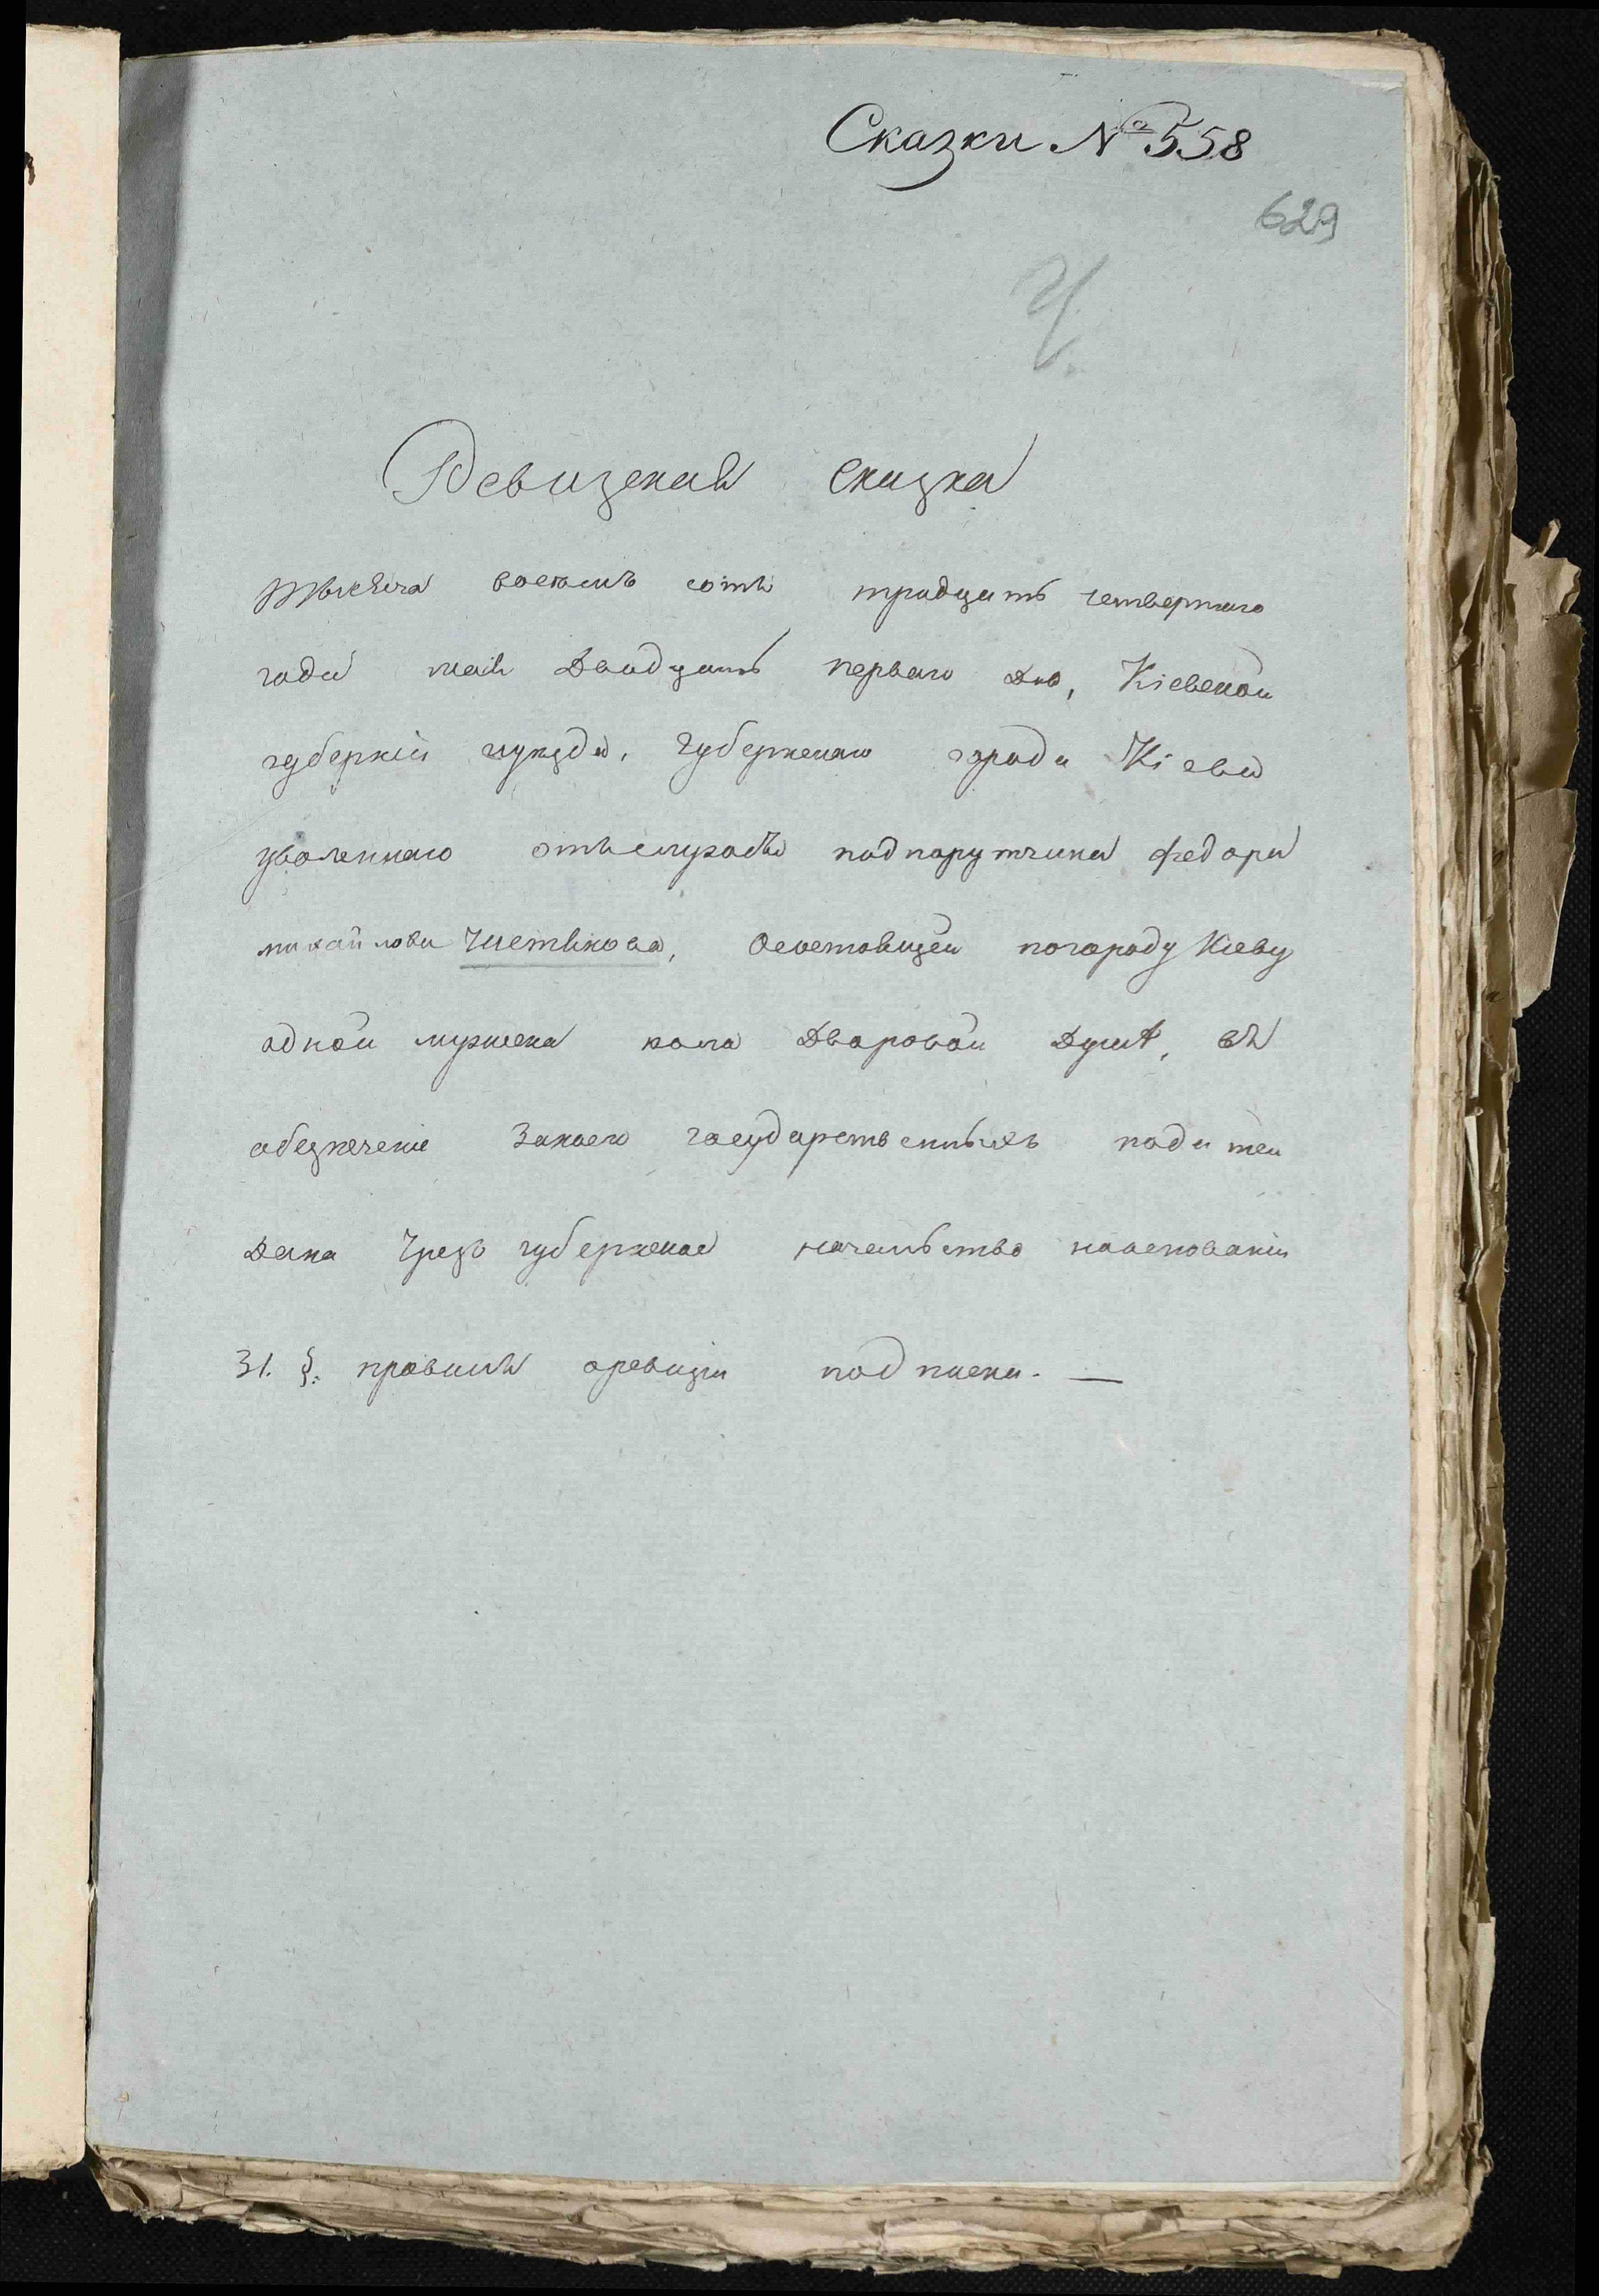 Сказки № 558
629
Ч.
Ревизская сказка
тысяча восемь сотъ тридцать четвертаго
года маiя двадцать перваго дня, Кiевской
губернiи иуезда, губернскаго города Кiева
уволеннаго отъслужбы подпорутчика федора
михайлова Чистякова, осостоящей погороду Кiеву
одной мужеска пола дворовой душѣ, въ
обезпеченiе Законею государственныхъ податей
Дана Чрезъ губернское начальство наосновaнiи
31. §. правилъ оревизiи подписка. —